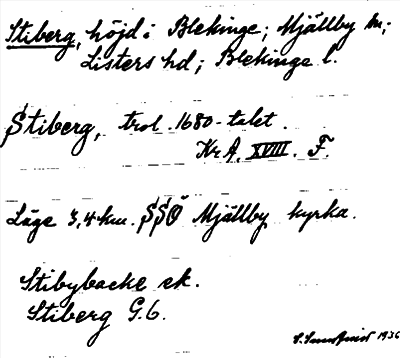 Stiberg, höjd i Blekinge; Mjällby sn;
Listers hd; Blekinge l.
Stiberg, trol. 1680-talet.
Kr A. XVIII. F.
Läge 3,4 km. SSÖ Mjällby kyrka.
Stibybacke ek.
Stiberg G.6.
1936